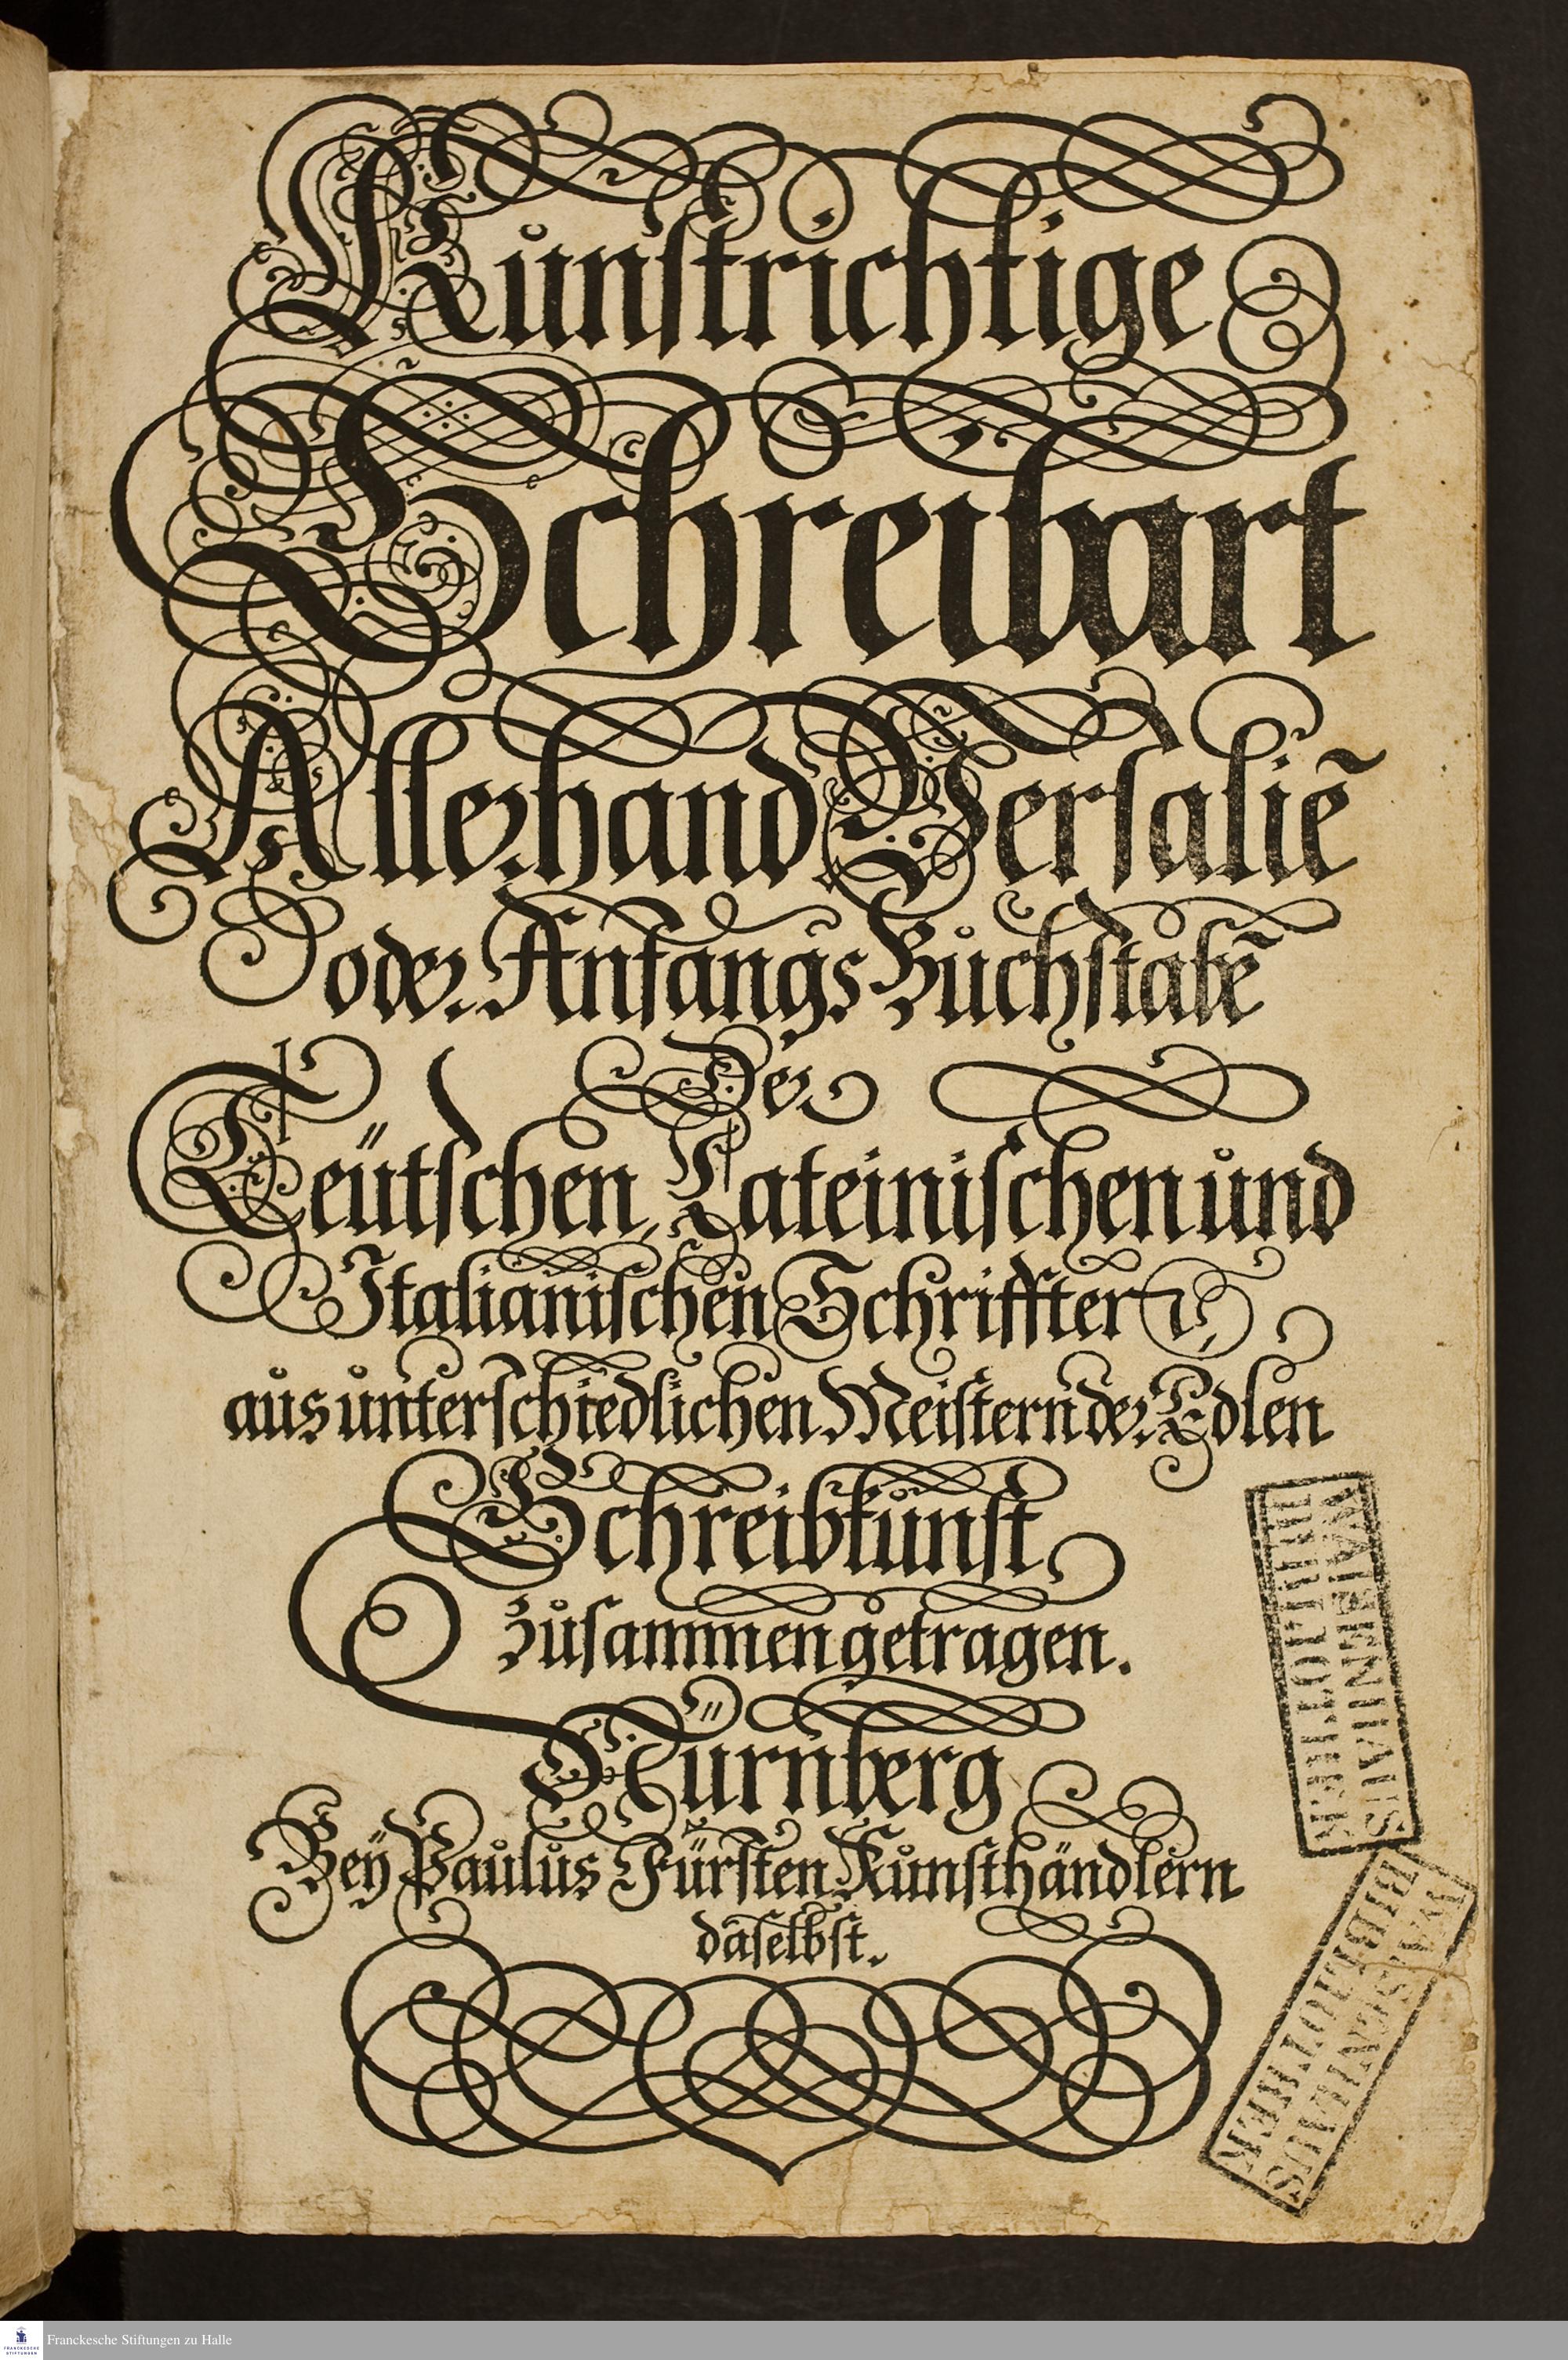 Kůnſtrichtige
Schreibart
Allerhand Verſaliẽ
oder Anfangs Bůchſtabẽ
Der
Teütſchen, Lateinischen ůnd
Italianiſchen Schrifften ꝛc,
aůs ůnterſchiedlichen Meiſtern der Edlen
Schreibkůnſt
Zůſammen getragen.
Nürnberg
Bey Paůlůs Fürſten Kůnſthändlern
daſelbſt.
WAISENHAUS
BIBLIOTHEK
WAISENHAUS
BIBLIOTHEK
FRANCKESCHE
STIFTUNGEN
Franckesche Stiftungen zu Halle